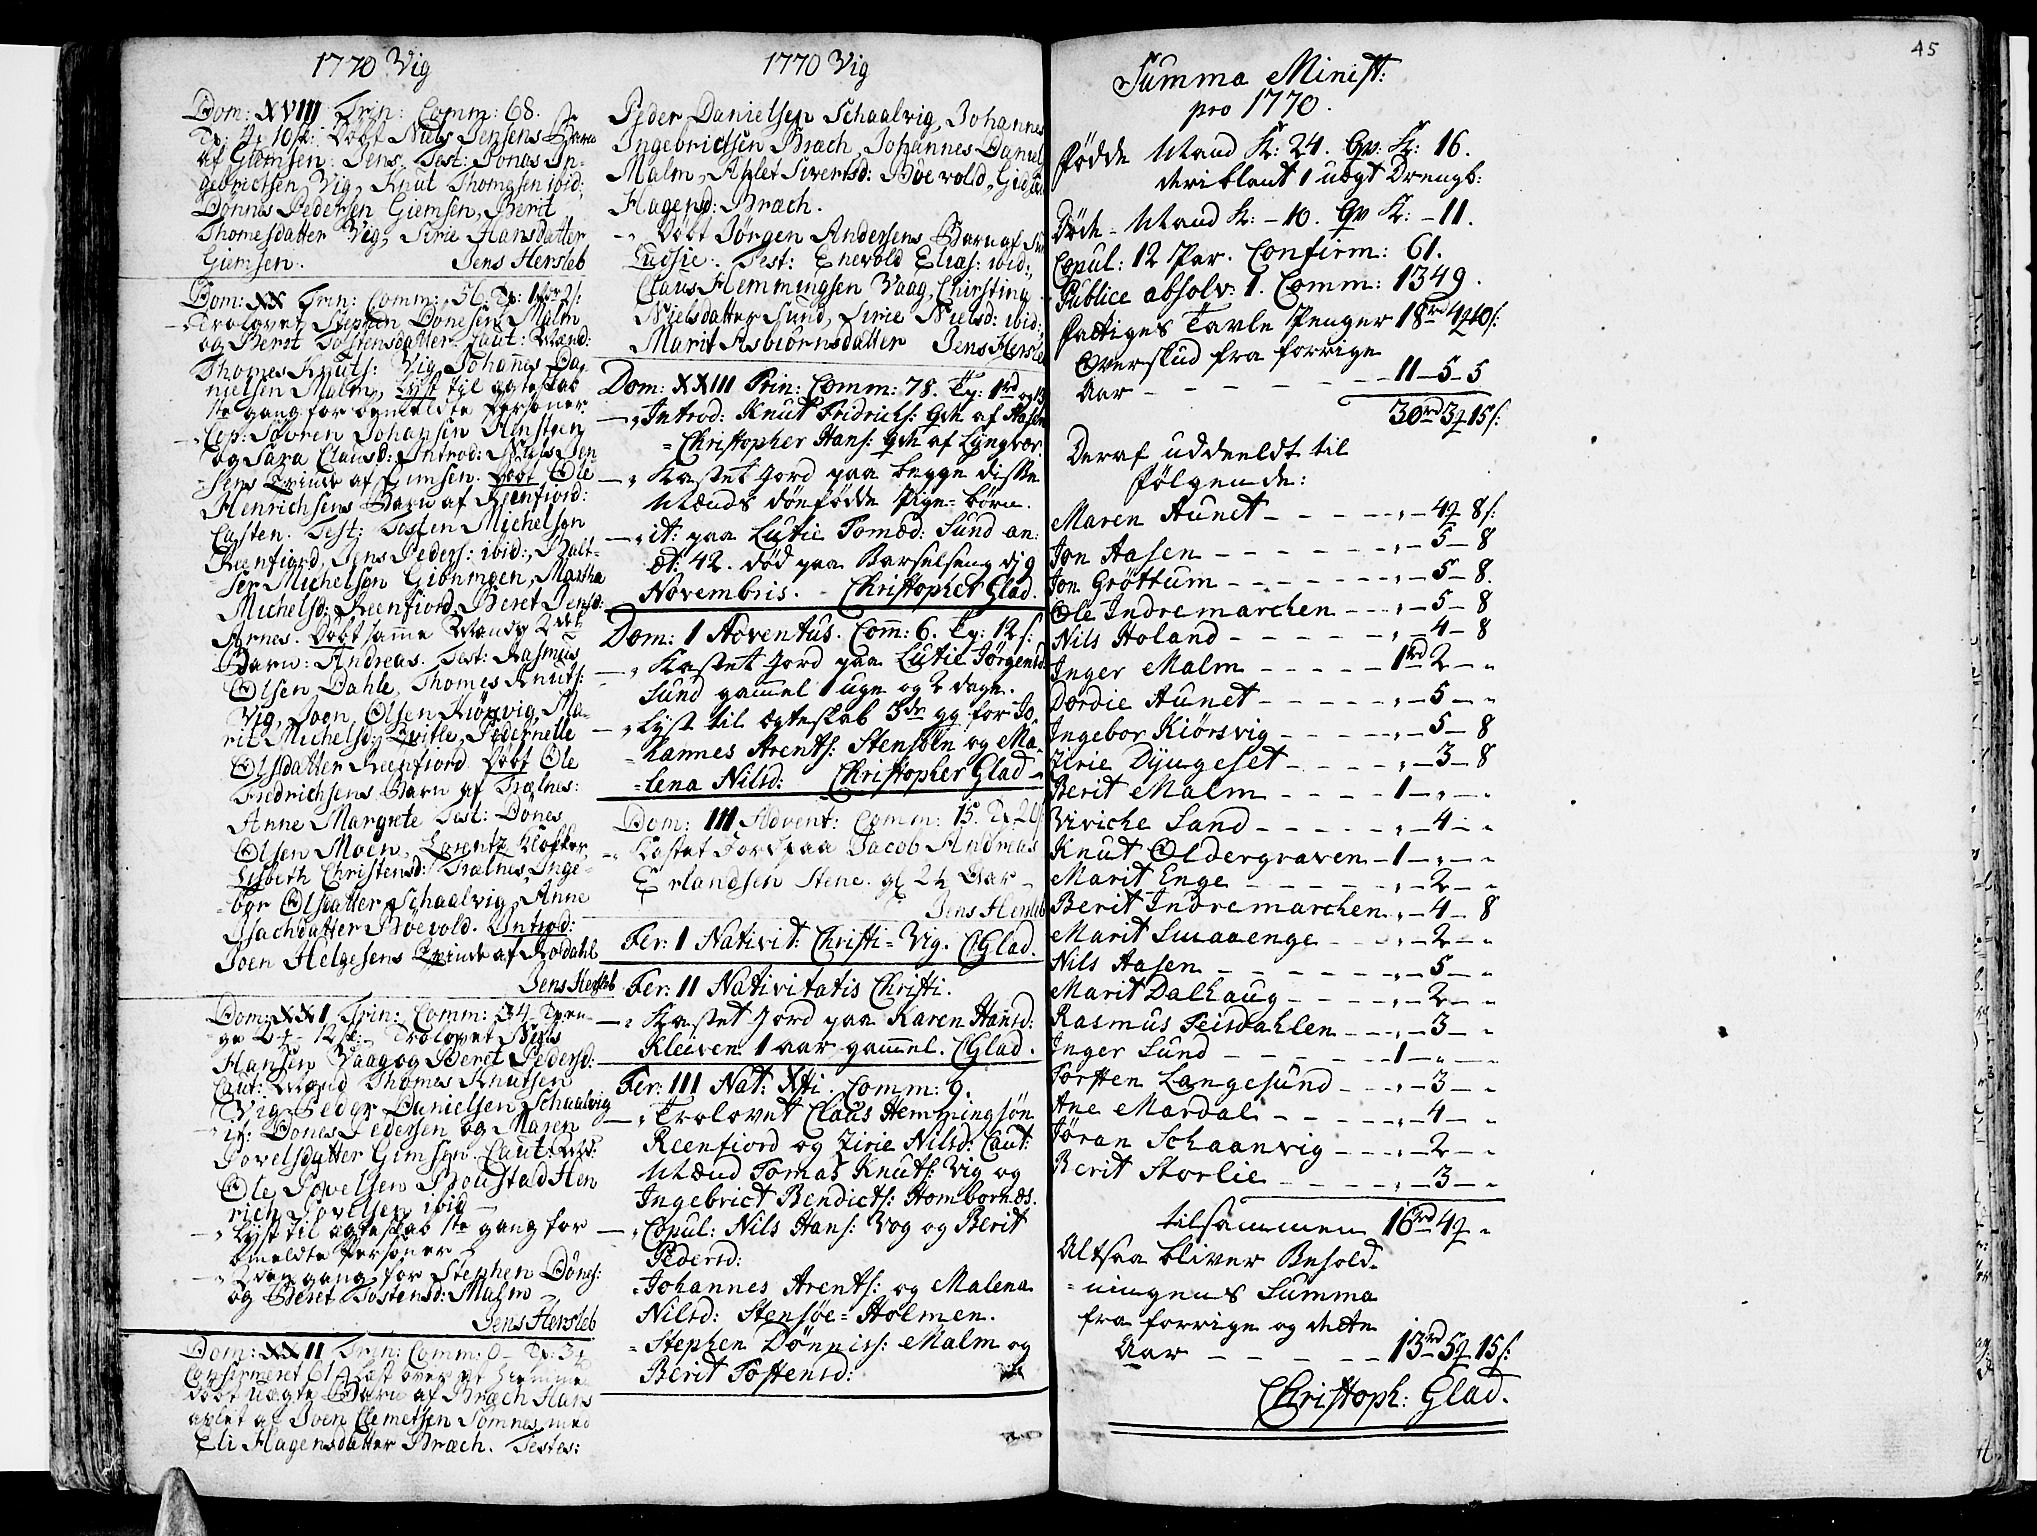 1770 Vig
Dom: XVIII Trin: Comm: 68.
Tp: 4 10sk: Døbt Niels Jensens Barn
af Giemsen: Jens. Test: Jonas In-
gebrictsen Vig, Knut Thomesen ibid:
Dønnes Pedersen Giemsen, Berit
Thomesdatter Vig, Sirie Hansdatter
Giemsen. Jens Hersleb
Dom: XX Trin: Comm: 56. Tp:
Trolovet Stephen Dønesen Malm
og Berit Tostensdatter. Caut: Mænd:
Thomes Knuts: Vig, Johannes Da-
nielsen Malm, Lyst til ægteskab
1te gang for bemeldte Personer.
Cop: Søvren Johansen Stensøen
og Sara Clausd: Introd: Niels Jen
sens Qvinde af Gimsen. Døbt Ole
Henrichsens Barn af Reenfiord:
Casten. Test: Tosten Michelsen
Reenfiord, Jens Peders: ibid:, Balt-
ser Michelsen Giøningen, Martha
Michelsd: Reenfiord, Beret Jensd:
Arnes. Døbt samme Mands 2det
Barn: Andreas. Test: Rasmus
Olsen Dahle, Thomes Knuts:
Vig, Joen Olsen Kiørsvig, Ma-
rit Michelsd: Qvitle, Pedernelle
Olsdatter Reenfiord. Døbt Ole
Fredrichsens Barn af Trælnes:
Anne Margrete Test: Dønes
Olsen Moen, Lorentz Klokker,
Lisbeth Christensd: Trælnes, Inge-
bor Olsdatter Schaalvig, Anne
Isachdatter Bøevold. Introd:
Joen Helgesens Qvinde af Rosdahl
Jens Hersleb
Dom: XXI Trin: Comm: 34. Tp en-
ge 12sk: Trolovet Niels
Hansen Vaag og Beret Pedersd:
Caut: Mænd Thomes Knutsen
Vig, Peder Danielsen Schaalvig
it: Dønes Pedersen og Maren
Povelsdatter Gimsen. Caut: M:
Ole Povelsen Boustad Hen
rich Povelsen ibid
Lyst til ægteskab 1te gang for
bemeldte Personer
2den gang for Stephen Dønes:
og Beret Tostensd: Malm
Jens Hersleb
Dom: XXII Trin: Comm: 0 Tp: 3
Confirmeret 61 hiemme
døbt uægte Barn af Bræch Hans
avlet af Joen Clemetsen Somnes med
Eli Hagensdatter Bræch. Testes:
1770 Vig
Peder Danielsen Schaalvig, Johannes
Ingebrictsen Bræch, Johannes Daniel
Malm, Ahlet Sivertsd: Bøevold, Gidsel
Hagensd: Bræch.
Døbt Jørgen Andersens Barn af
Ludsie. Test: Enevold Elias: ibid:,
Claus Hemmingsen Vaag, Chirsting
Nielsdatter Sund, Sirie Nielsd: ibid:,
Marit Asbiørnsdatter Jens Hersleb
Dom: XXIII Trin: Comm: 78. Tp: 1rd og 13
Introd: Knut Fridrichs: Qv: af Aasen
Christopher Hans: Qv: af Lyngvær
Kastet Jord paa begge disse
Mænds dødfødde Pige-børn.
it: paa Lutie Tomæd: Sund an:
æt: 42. død paa Barselseng d: 9
Novembris. Christopher Glad.
Dom: 1 Adventus. Com: 6. Tp: 12s:
Kastet Jord paa Lutie Jørgensd:
Sund gammel 1 uge og 2 dage.
Lyst til Ægteskab 3de gg for Jo-
hannes Arents: Stensøen og Ma-
lena Nilsd: Christopher Glad
Dom: III Advent: Comm: 15. Tp: 20
Kastet Jord paa Jacob Andreas
Erlandsen Stene. gl 2½ Aar
Jens Hersleb
Fer: 1 Nativit: Christi = Vig. CGlad.
Fer: II Nativitatis Christi.
Kastet Jord paa Karen Hansd:
Kleiven 1 aar gammel. CGlad.
Fer: III Nat: Xti. Comm: 9.
Trolovet Claus Hemmingsøn
Reenfiord og Zirie Nilsd: Caut:
Mænd Tomas Knuts: Vig og
Ingebrict Bendicts: Hombornæs.
Copul: Nils Hans: Vog og Berit
Pedersd:
Johannes Arents: og Malena
Nilsd: Stensøe-Holmen.
Stephen Dønniss: Malm og
Berit Tostensd:
45
Summa Minist:
pro 1770.
Fødde Mand K: 24. Qv: K: 16.
deriblant 1 uægt Drengb:
Døde Mand K: – 10. Qv K: – 11.
Copul: 12 Par. Confirm: 61.
Publice absolv: 1. Comm: 1349.
Fattiges Tavle Penger 18rd 4 10s:
Overskud fra forrige
Aar – – – – – 11 – 5 – 5
30rd 3 15s:
Deraf uddeeldt til
Følgende:
Maren Aunet – – – – „ – 4 8s:
Jon Aasen – – – – „ – 5 – 8
Jon Grøttum – – – – „ – 5 – 8.
Ole Indremarchen – – „ – 5 – 8
Nils Holand – – – – „ – 4 – 8
Inger Malm – – – – 1rd 2 – „
Dordie Aunet – – – – „ – 5 – „
Ingebor Kiørsvig – – – „ – 5 – 8
Zirie Dyngeset – – – – „ – 3 – 8
Berit Malm – – – – 1 – „ – „
Viviche Sand – – – – „ – 4 – „
Knut Oldergraven – 1 – „ – „
Marit Enge – – – – „ – 2 – „
Berit Indremarchen „ – 4 – 8
Marit Smaaenge – – „ – 2 – „
Nils Aasen – – – – „ – 5 – „
Marit Dalhaug – – – „ – 2 – „
Rasmus Feisdahlen – – „ – 3 – „
Inger Sund – – – – 1 – „ – „
Torsten Langesund – – „ – 3 – „
Ane Mardal – – – – „ – 4 – „
Jøran Schaanvig – – – „ – 2 – „
Berit Storlie – – – – „ – 3 – „
tilsammen 16rd 4 „
Altsaa bliver Behold-
ningens Summa
fra forrige og dette
Aar – – – – – 13rd 5 15s:
Christoph: Glad.